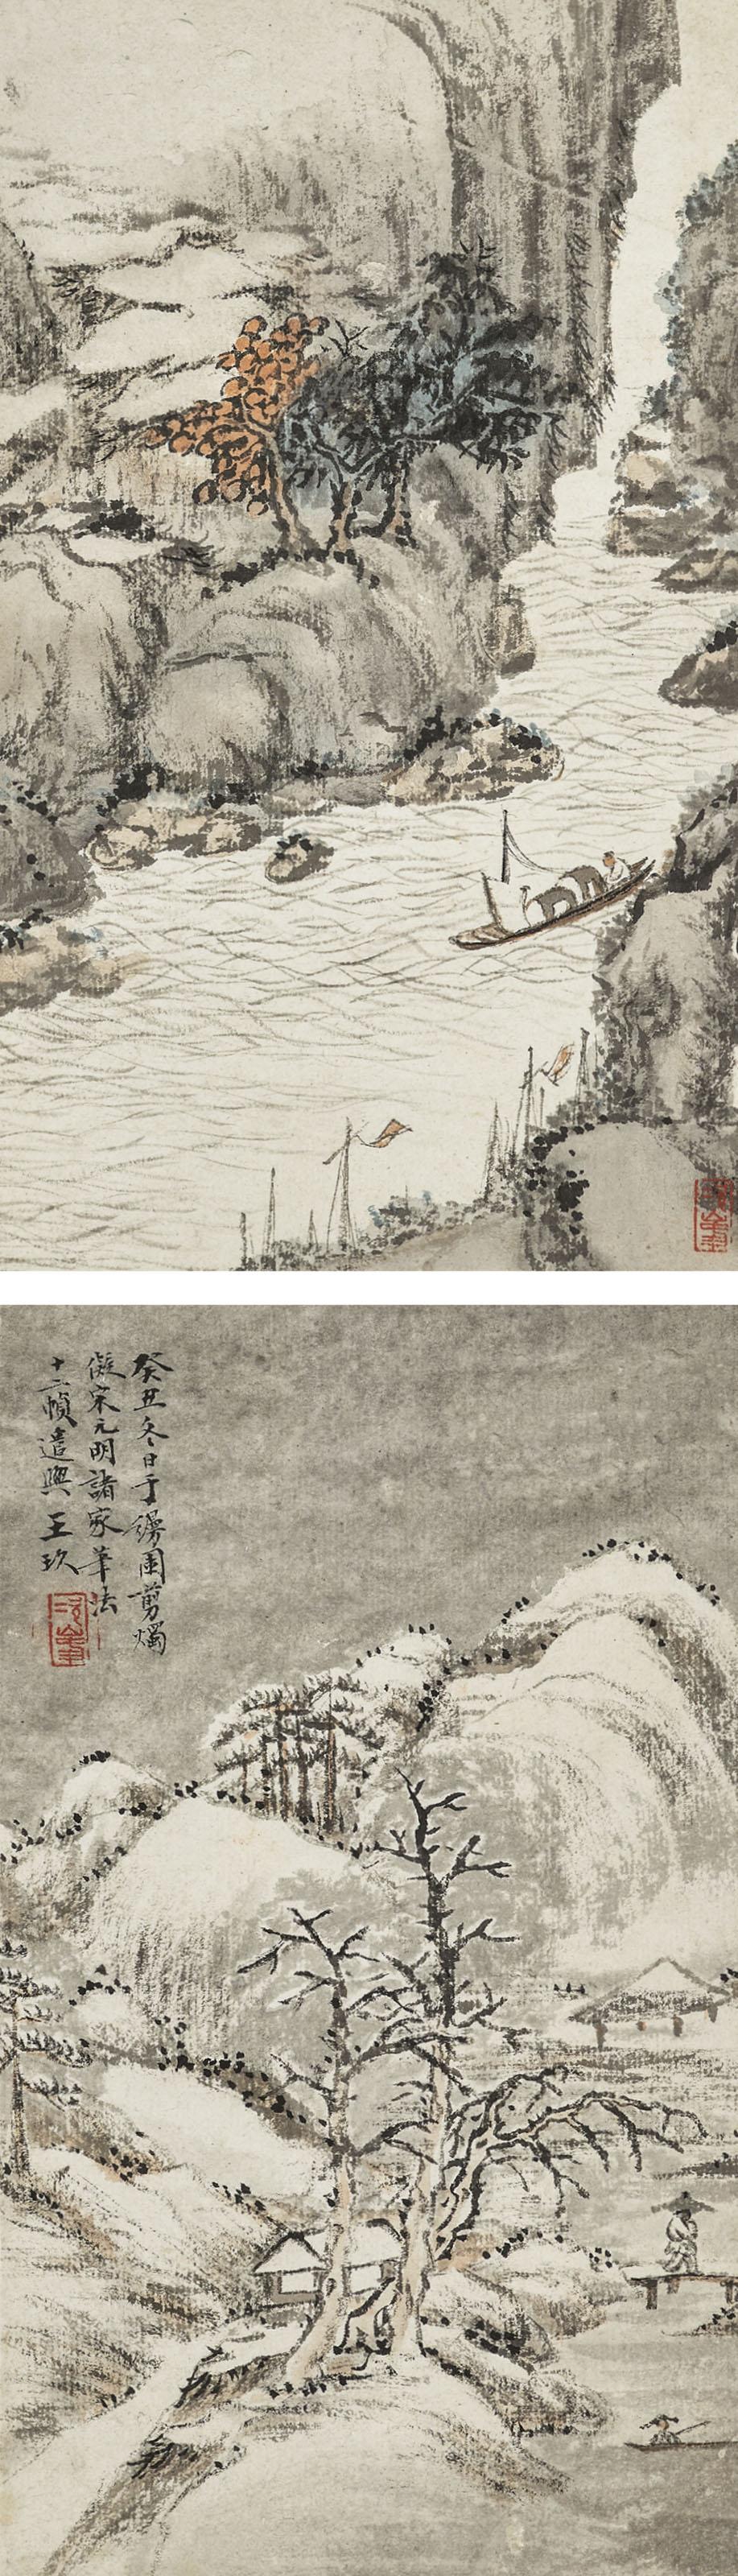 癸丑冬日于缦圃剪燭
儗宋元明諸家筆法
十二幀遣興 王玖